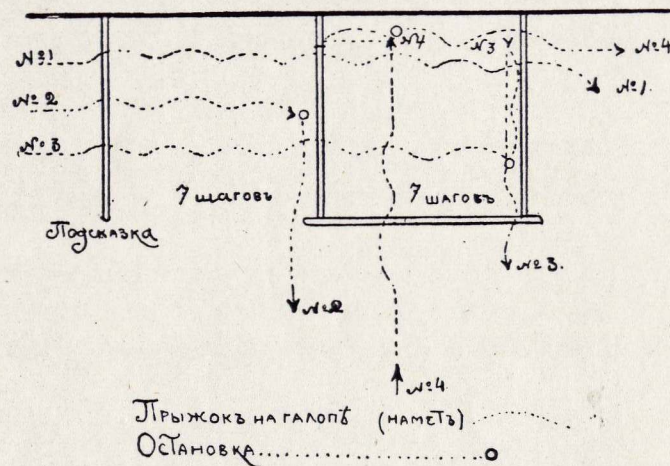 №4 №3 №4
№1 №1.
№2
№3
7 шаговъ 7 шаговъ
Подсказка
№3.
№2
№4.
Прыжокъ на галопѣ (наметъ)
Остановка